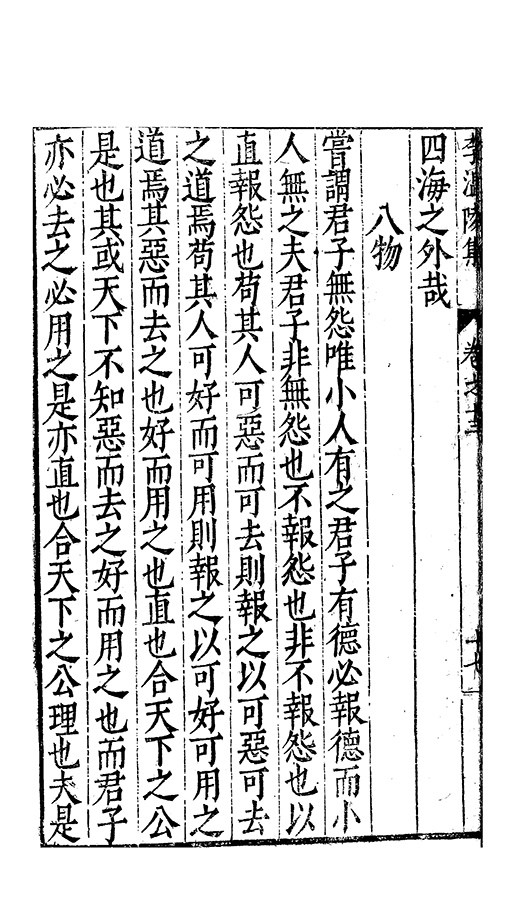 李溫陵集 卷之十三 十七
四海之外哉
八物
嘗謂君子無怨唯小人有之君子有德必報德而小
人無之夫君子非無怨也不報怨也非不報怨也以
直報怨也苟其人可惡而可去則報之以可惡可去
之道焉苟其人可好而可用則報之以可好可用之
道焉其惡而去之也好而用之也直也合天下之公
是也其或天下不知惡而去之好而用之也而君子
亦必去之必用之是亦直也合天下之公理也夫是